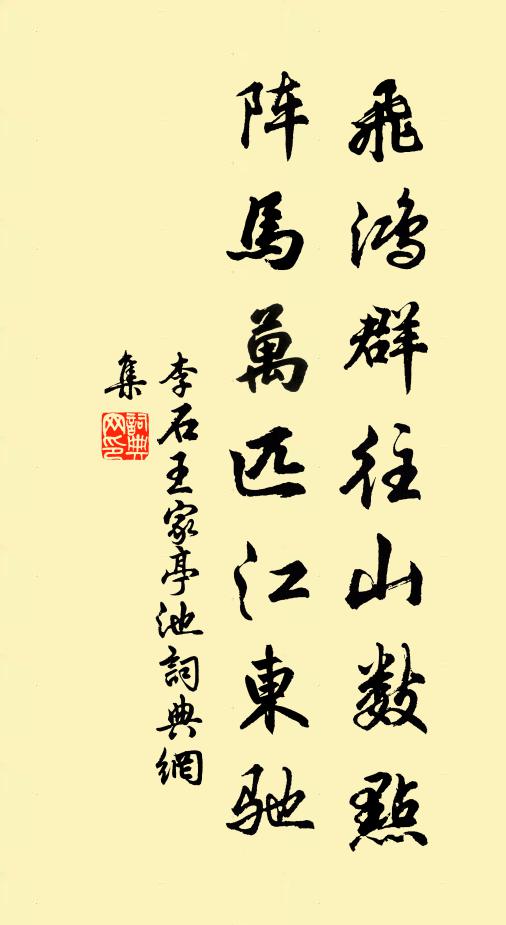 飛鴻群往山数點
阵馬萬匹江東馳
李石王家亭池詞典網
集
詞典网印